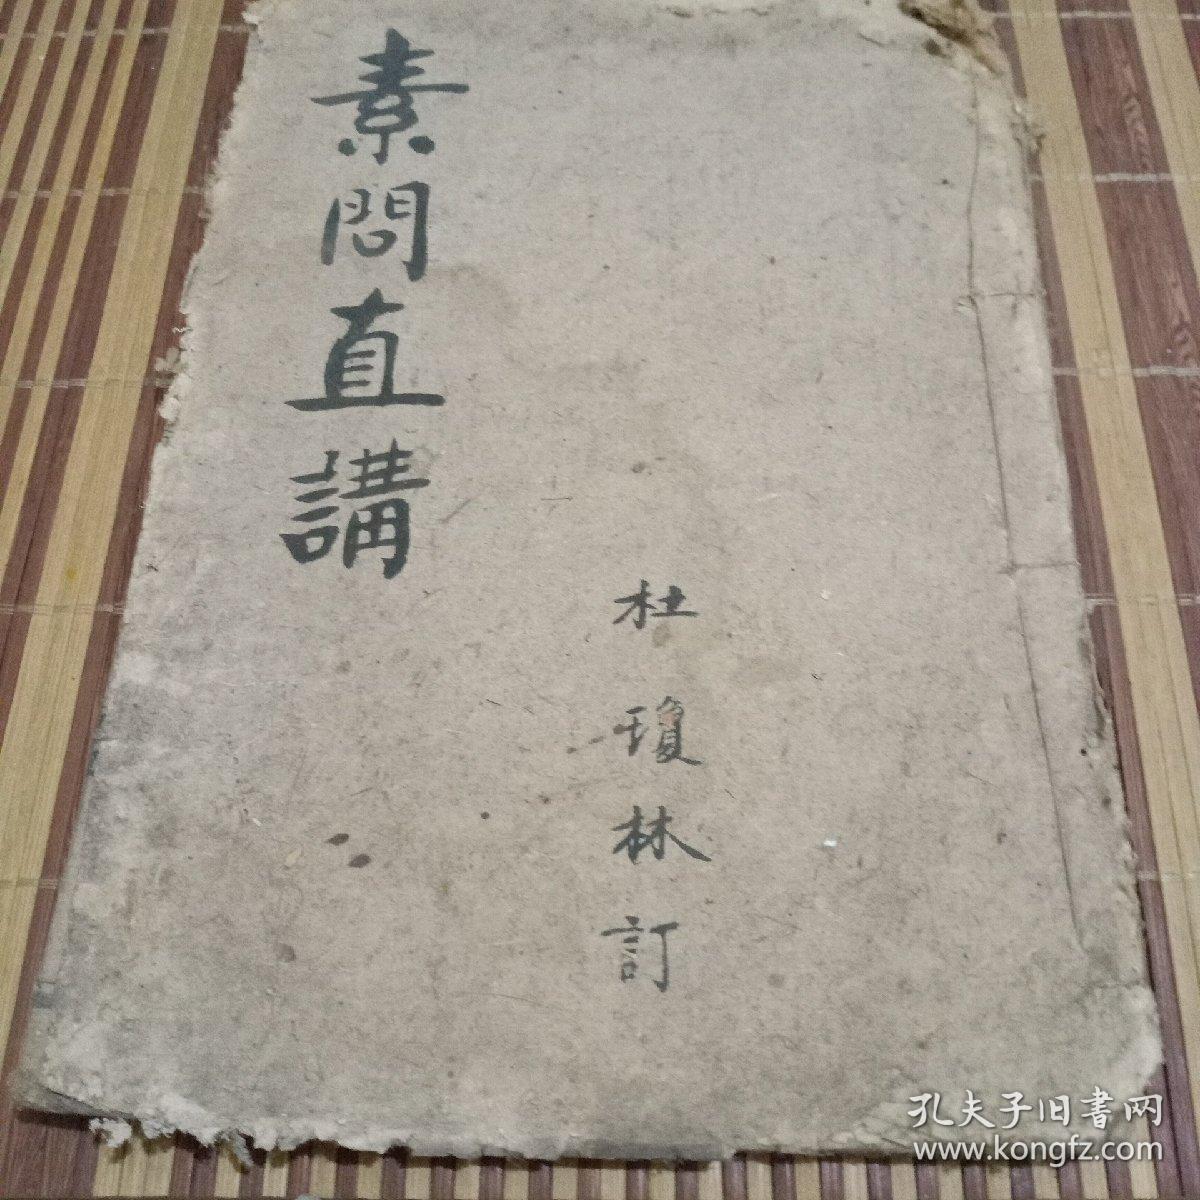 素問直講
杜瓊林訂
孔夫子旧書网
www.kongfz.com